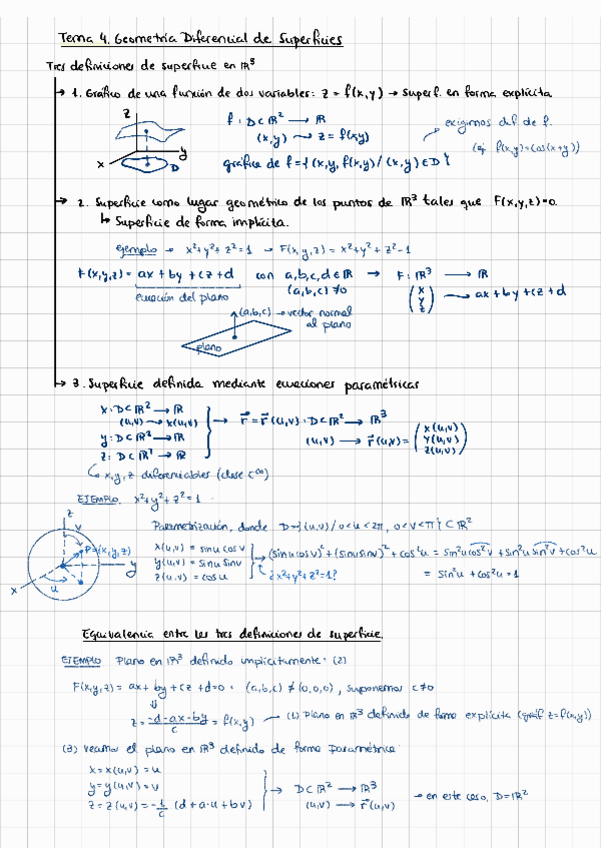 Tema 4. Geometría Diferencial de Superficies
Tres definiciones de superficie en ℝ³
→ 1. Gráfico de una función de dos variables: z = f(x,y) → Superf. en forma explícita
z
x
y
D
f: D⊂ℝ² → ℝ
(x,y) ⤳ z = f(x,y)
gráfica de f = {(x,y, f(x,y) / (x,y) ∈ D}
exigimos dif. de f.
(ej. f(x,y)=cos(x+y))
→ 2. Superficie como lugar geométrico de los puntos de ℝ³ tales que F(x,y,z)=0.
↳ Superficie de forma implícita.
ejemplo → x²+y²+z²=1 → F(x,y,z) = x²+y²+z²-1
F(x,y,z) = ax + by + cz + d con a,b,c,d ∈ ℝ → F: ℝ³ → ℝ
ecuación del plano (a,b,c) ≠ 0 (x y z) ⤳ ax + by + cz + d
(a,b,c) → vector normal al plano
plano
→ 3. Superficie definida mediante ecuaciones paramétricas
x: D⊂ℝ² → ℝ
(u,v) → x(u,v)
y: D⊂ℝ² → ℝ
z: D⊂ℝ² → ℝ
→ r⃗ = r⃗(u,v): D⊂ℝ² → ℝ³
(u,v) → r⃗(u,v) = (x(u,v) y(u,v) z(u,v))
↳ x, y, z diferenciables (clase C^∞)
EJEMPLO. x²+y²+z²=1
z
v
P=(x,y,z)
y
u
x
Parametrización, donde D={(u,v)/0<u<2π, 0<v<π} ⊂ ℝ²
x(u,v) = sinu cosv
y(u,v) = sinu sinv
z(u,v) = cosu
→ (sinu cosv)² + (sinu sinv)² + cos²u = sin²u cos²v + sin²u sin²v + cos²u
¿x²+y²+z²=1?
= sin²u + cos²u = 1
Equivalencia entre las tres definiciones de superficie.
EJEMPLO Plano en ℝ³ definido implícitamente: (2)
F(x,y,z) = ax + by + cz + d = 0. (a,b,c) ≠ (0,0,0), suponemos c≠0
⇓
z = (-d-ax-by)/c = f(x,y) → (1) Plano en ℝ³ definido de forma explícita (gráf z=f(x,y))
(3) veamos el plano en ℝ³ definido de forma paramétrica
x = x(u,v) = u
y = y(u,v) = v
z = z(u,v) = -1/c (d + a·u + bv)
→ D⊂ℝ² → ℝ³
(u,v) → r⃗(u,v)
→ en este caso, D=ℝ²